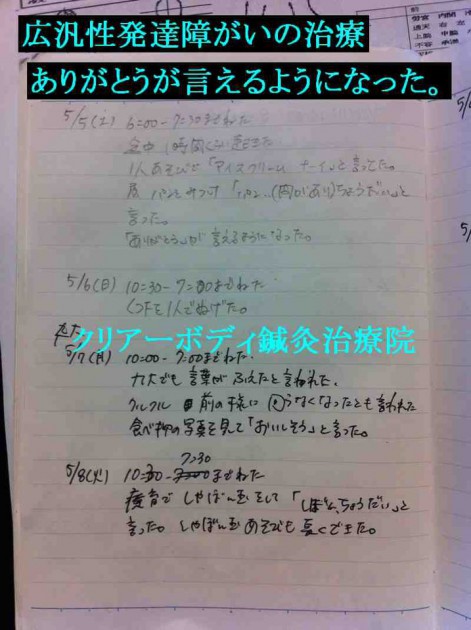 広汎性発達障がいの治療
ありがとうが言えるようになった。
5/5(土) 6:00-7:30までねた
1時間くらい起きた
1人あそびで「アイスクリーム ナーイ」と言ってた。
ちょうだい」と
言った。
「ありがとう」が言えるようになった。
5/6(日) 10:30-7:00までねた
くつ下を1人でぬげた。
クリアーボディ鍼灸治療院
5/7(月) 10:00-7:00までねた
九大でも言葉がふえたと言われた。
クルクル 前の様に回らなくなったとも言われた
食べ物の写真を見て「おいしそう」と言った。
7:30
5/8(火) 10:30- までねた
療育でしゃぼん玉をして「しゃぼん、ちょうだい」と
言った。しゃぼん玉あそびも長くできた。